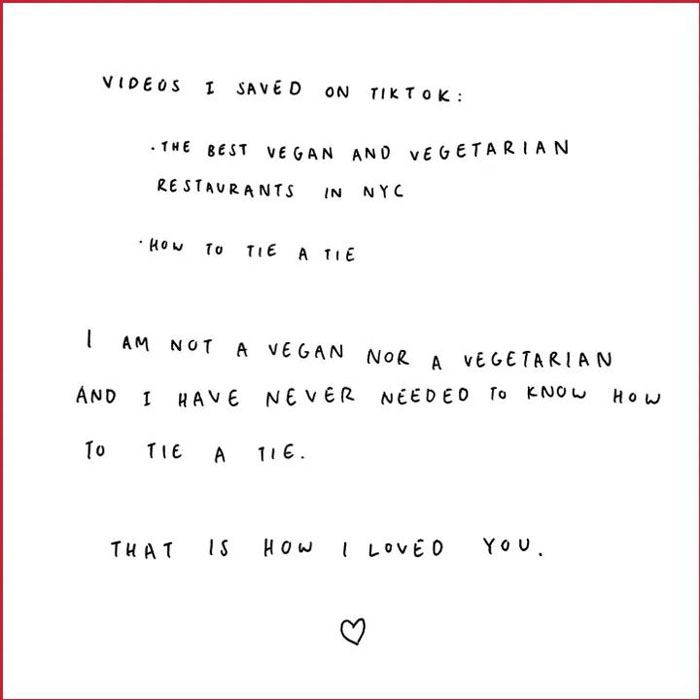 VIDEOS I SAVED ON TIKTOK:
·THE BEST VEGAN AND VEGETARIAN
RESTAURANTS IN NYC
·HOW TO TIE A TIE
I AM NOT A VEGAN NOR A VEGETARIAN
AND I HAVE NEVER NEEDED TO KNOW HOW
TO TIE A TIE.
THAT IS HOW I LOVED YOU.